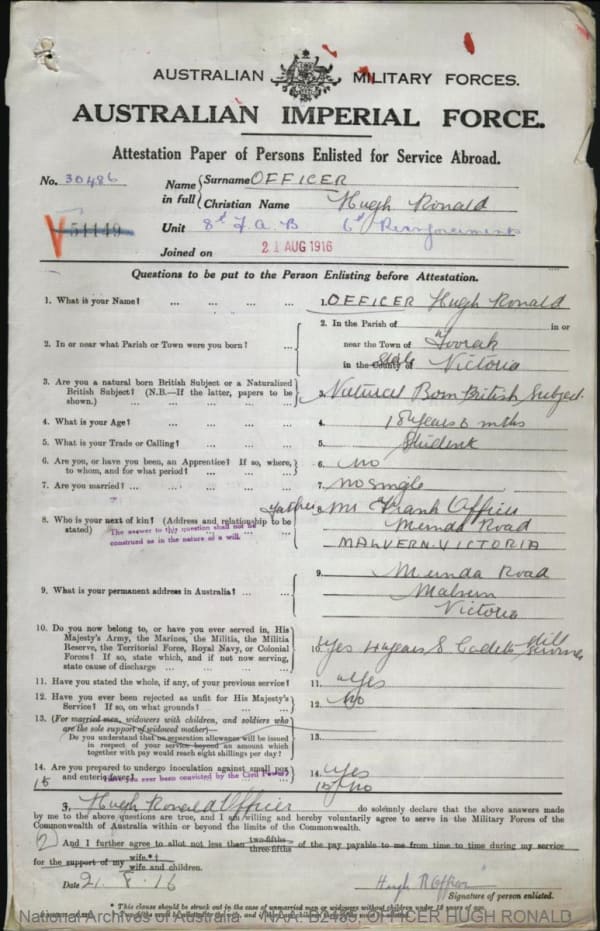 AUSTRALIAN MILITARY FORCES.
AUSTRALIAN IMPERIAL FORCE.
Attestation Paper of Persons Enlisted for Service Abroad.
No. 30486 Name in full { Surname OFFICER
Christian Name Hugh Ronald
V 51149 Unit 8th F.A.B 6th Reinforcements
Joined on 21 AUG 1916
Questions to be put to the Person Enlisting before Attestation.
1. What is your Name? ... ... ... ... 1. OFFICER Hugh Ronald
2. In or near what Parish or Town were you born? ... 2. In the Parish of in or
near the Town of Toorak
in the County of State Victoria
3. Are you a natural born British Subject or a Naturalized
British Subject? (N.B.—If the latter, papers to be
shown.) ... ... ... ... 3. Natural Born British Subject.
4. What is your Age? ... ... ... ... 4. 18 years 6 mths
5. What is your Trade or Calling? ... ... ... 5. Student
6. Are you, or have you been, an Apprentice? If so, where,
to whom, and for what period? ... ... ... 6. No
7. Are you married? ... ... ... ... 7. No single
8. Who is your next of kin? (Address and relationship to be
stated) The answer to this question shall not be
construed as in the nature of a will.
Father 8. Mr Frank Officer
Road
MALVERN. VICTORIA
9. What is your permanent address in Australia? ... ... 9. Road
Malvern
Victoria
10. Do you now belong to, or have you ever served in, His
Majesty's Army, the Marines, the Militia, the Militia
Reserve, the Territorial Force, Royal Navy, or Colonial
Forces? If so, state which, and if not now serving,
state cause of discharge ... ... ... 10. Yes 4 years S Cadets still serving
11. Have you stated the whole, if any, of your previous service? 11. Yes
12. Have you ever been rejected as unfit for His Majesty's
Service? If so, on what grounds? ... ... 12. No
13. (For married men, widowers with children, and soldiers who
are the sole support of widowed mother)—
Do you understand that no separation allowance will be issued
in respect of your service beyond an amount which
together with pay would reach eight shillings per day? 13.
14. Are you prepared to undergo inoculation against small pox
and enteric fever? 14. Yes
15 Have you ever been convicted by the Civil Power? 15 No
I, Hugh Ronald Officer do solemnly declare that the above answers made
by me to the above questions are true, and I am willing and hereby voluntarily agree to serve in the Military Forces of the
Commonwealth of Australia within or beyond the limits of the Commonwealth.
(2) And I further agree to allot not less than two-fifths three-fifths of the pay payable to me from time to time during my service
for the support of my wife.*† wife and children.
Date 21. 8. 16 Hugh R Officer
Signature of person enlisted.
* This clause should be struck out in the case of unmarried men or widowers without children under 18 years of age.
National Archives of Australia NAA: B2455, OFFICER HUGH RONALD